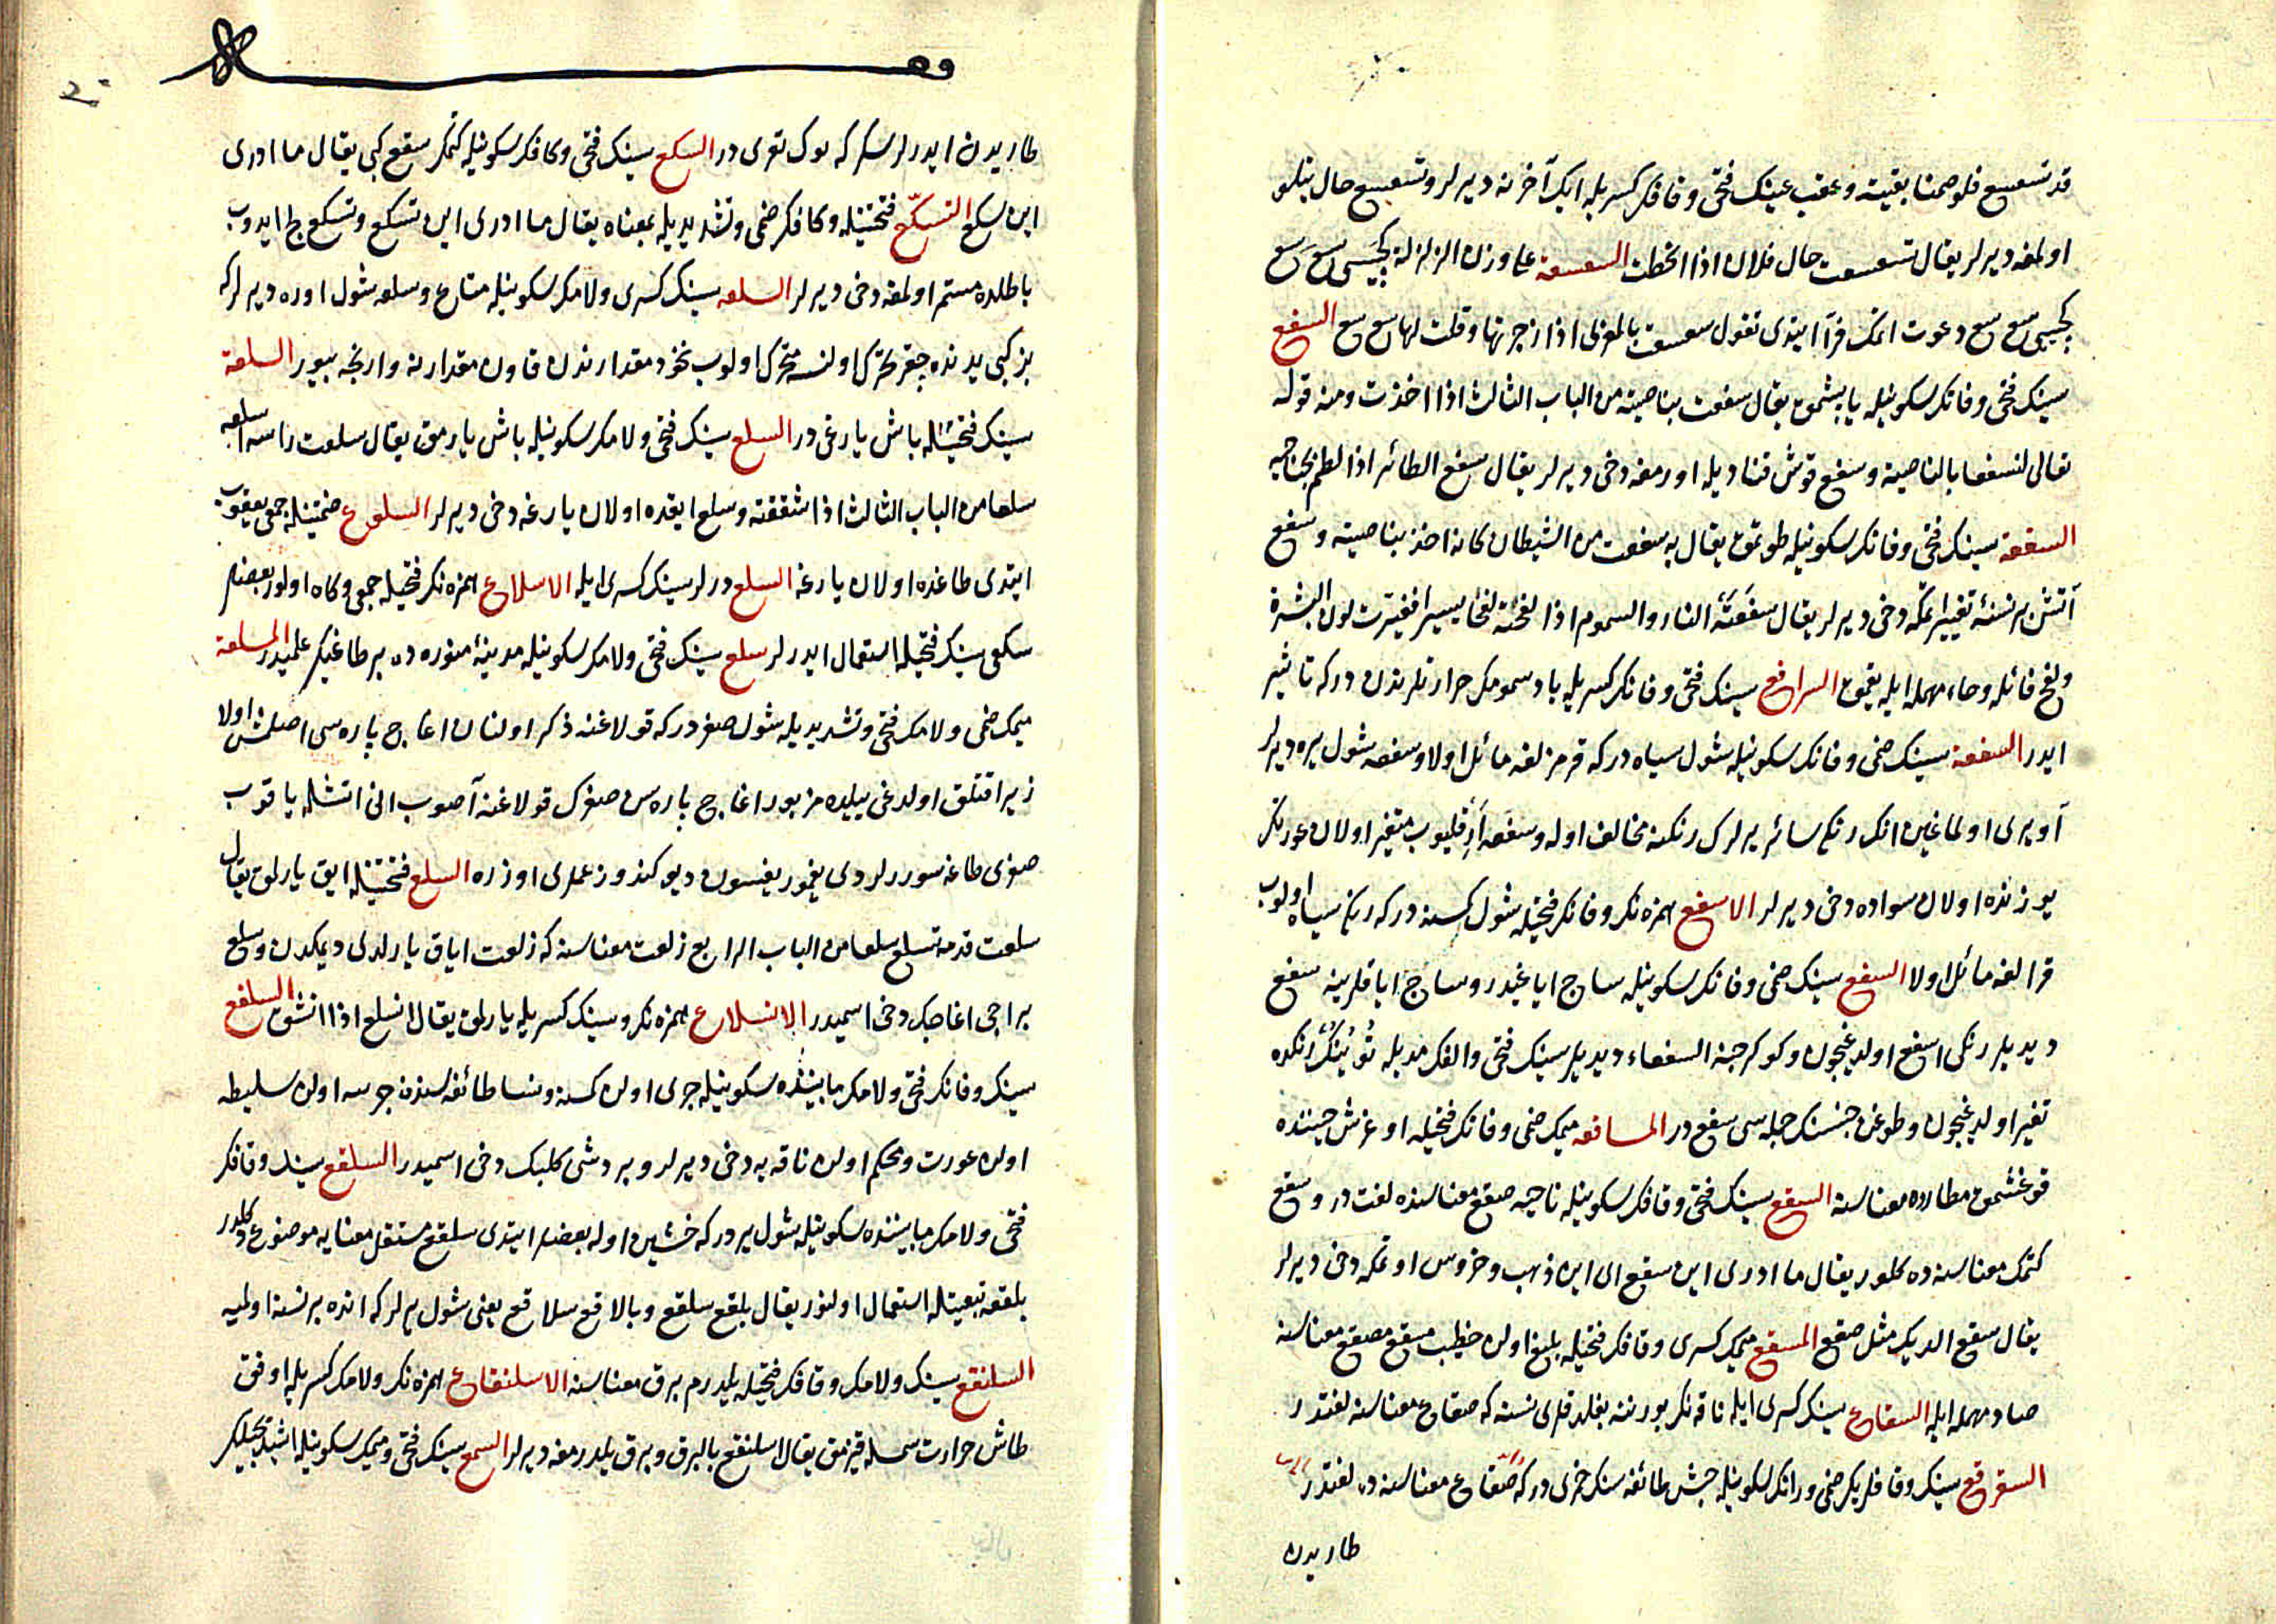 قد تسعسع فلو صمنا بقيته وعقب عينك فتحى وقافك كسريله ايك آخرنه ديرلر وتسعسع حال يتلو
اولمغه ديرلر يقال تسعسعت حال فلان اذا انحطت السعسعة على وزن الزلزلة كچيى سع سع
كچيى سع سع دعوت اتمك فرآ ايتدى تقول سعسعت بالمعزى اذا زجرتها وقلت لها سع سع السفع
سينك فتحى وفانك سكونيله يابشمق يقال سفعت بناصيته من الباب الثالث اذا اخذت ومنه قوله
تعالى لنسفعا بالناصية وسفع قوش قناديله اورمغه دخى ديرلر يقال سفع الطائر اذا لطم بجناحيه
السفعة سينك فتحى وفانك سكونيله طوتمق يقال به سفعت من الشيطان كانه اخذ بناصيته وسفع
آتش بر نسنه تغيير اتمكه دخى ديرلر يقال سفعته النار والسموم اذا لفحته لفحا يسيرا فغيرت لون البشرة
ولفح فائله وحاء مهمله ايله يقمق السرافع سينك فتحى وفانك كسريله باد سمومك حرارتلرندن دركه تاثير
ايدر السفعة سينك ضمى وفانك سكونيله شول سياه دركه قرمزلغه مائل اولا وسفعه شول يره ديرلر
آو يرى اولماغين انك رنكى سائر يرلرك رنكنه مخالف اوله وسفعه ارقليوب متغير اولان عورتك
يوزنده اولان سواده دخى ديرلر الاسفع همزه نك وفانك فتحيله شول كسنه دركه رنكى سياه اولوب
قرالغه مائل اولا السفع سينك ضمى وفانك سكونيله ساج اياغيدر وساج اياقلرينه سفع
ديديلر رنكى اسفع اولديغيچون وكوكرجنه السفعاء ديديلر سينك فتحى والفك مديله رنكده
تغير اولديغيچون وطوغن جنسنك جمله سى سفع در المسافعه ميمك ضمى وفانك فتحيله اوغرش حيننده
قوغشمق مطارده معناسنه السقع سينك فتحى وقافك سكونيله ناحيه صقع معناسنده لغت در وسقع
كتمك معناسنده كلور يقال ما ادرى اين سقع اى اين ذهب وخروس اوتمكه دخى ديرلر
يقال سقع الديك مثل صقع المسقع ميمك كسرى وقافك فتحيله بليغ اولان خطيب مسقع مصقع معناسنه
صاد مهمله ايله السقاع سينك كسرى ايله ناقه نك بورننه بغلدقلرى نسنه كه صقاع معناسنه لغتدر
السقرقع سينك وقافلريك ضمى ورانك سكونيله حبش طائفه سنك خمرى دركه صقاع معناسنه ده لغتدر
طاريدن
طاريدن ايدرلر سكركه بوك تورى در السكع سينك فتحى وكافك سكونيله كتمك سقع كبى يقال ما ادرى
اين سكع التسكّع فتحتينله وكافك ضمى وتشديديله بمعناه يقال ما ادرى اين تسكع وتسكع لج ايدوب
باطلده مستمر اولمغه دخى ديرلر السلعه سينك كسرى ولامك سكونيله متاع وسلعه شول اوره ديرلركه
بزكبى بدنده چقر تحرك اولنسه متحرك اولوب نخود مقدارندن قاون مقدارنه وارنجه بيور السلعة
سينك فتحيله باش يارغى در السلع سينك فتحى ولامك سكونيله باش يارمق يقال سلعت راسه اسلعه
سلعا من الباب الثالث اذا شققته وسلع ايقده اولان يارغه دخى ديرلر السلوع ضمتينله جمعى يعقوب
ايتدى طاغده اولان يارغه السلع درلر سينك كسرى ايله الاسلاع همزه نك فتحيله جمعى وكاه اولور بعضلر
سكعى سينك فتحيله استعمال ايدرلر سلع سينك فتحى ولامك سكونيله مدينه منوره ده بر طاغك علميدر المسلعة
ميمك ضمى ولامك فتحى وتشديديله شول صغردركه قولاغنه ذكر اولنان اغاج پاره سى اصلمش اولا
زيرا قتلق اولدغى ييلده مزبور اغاج پاره سن صغرك قولاغنه آصوب انى اتشله ياقوب
صغرى طاغه سوررلردى يغمور يغسون ديو كندو زعملرى اوزره السلع فتحتينله ايق يارلمق يقال
سلعت قدمه تسلع سلعا من الباب الرابع زلعت معناسنه كه زلعت اياق يارلدى ديمكدن وسلع
بر آجى اغاجك دخى اسميدر الانسلاع همزه نك وسينك كسريله يارلمق يقال انسلع اذا انشق السلفع
سينك وفانك فتحى ولامك مابيننده سكونيله جرى اولن كسنه ونسا طائفه سنده جرسه اولن سليطه
اولن عورت ومحكم اولن ناقه يه دخى ديرلر وبر دشى كلبك دخى اسميدر السلقع سينك وقافك
فتحى ولامك مابيننده سكونيله شول يردركه خشين اوله بعضلر ايتدى سلقع مستقل معنايه موضوع دكلدر
بلقعه تبعيتله استعمال اولنور يقال بلقع سلقع وبلاقع سلاقع يعنى شول يرلركه انده بر نسنه اولميه
السلنقع سينك ولامك وقافك فتحيله يلدرم برق معناسنه الاسلنقاع همزه نك ولامك كسريله اوفق
طاش حرارت شمسله قيزمق يقال اسلنقع بالبرق وبرق يلدرمغه ديرلر السمع سينك فتحى وميمك سكونيله اشيديجيلك